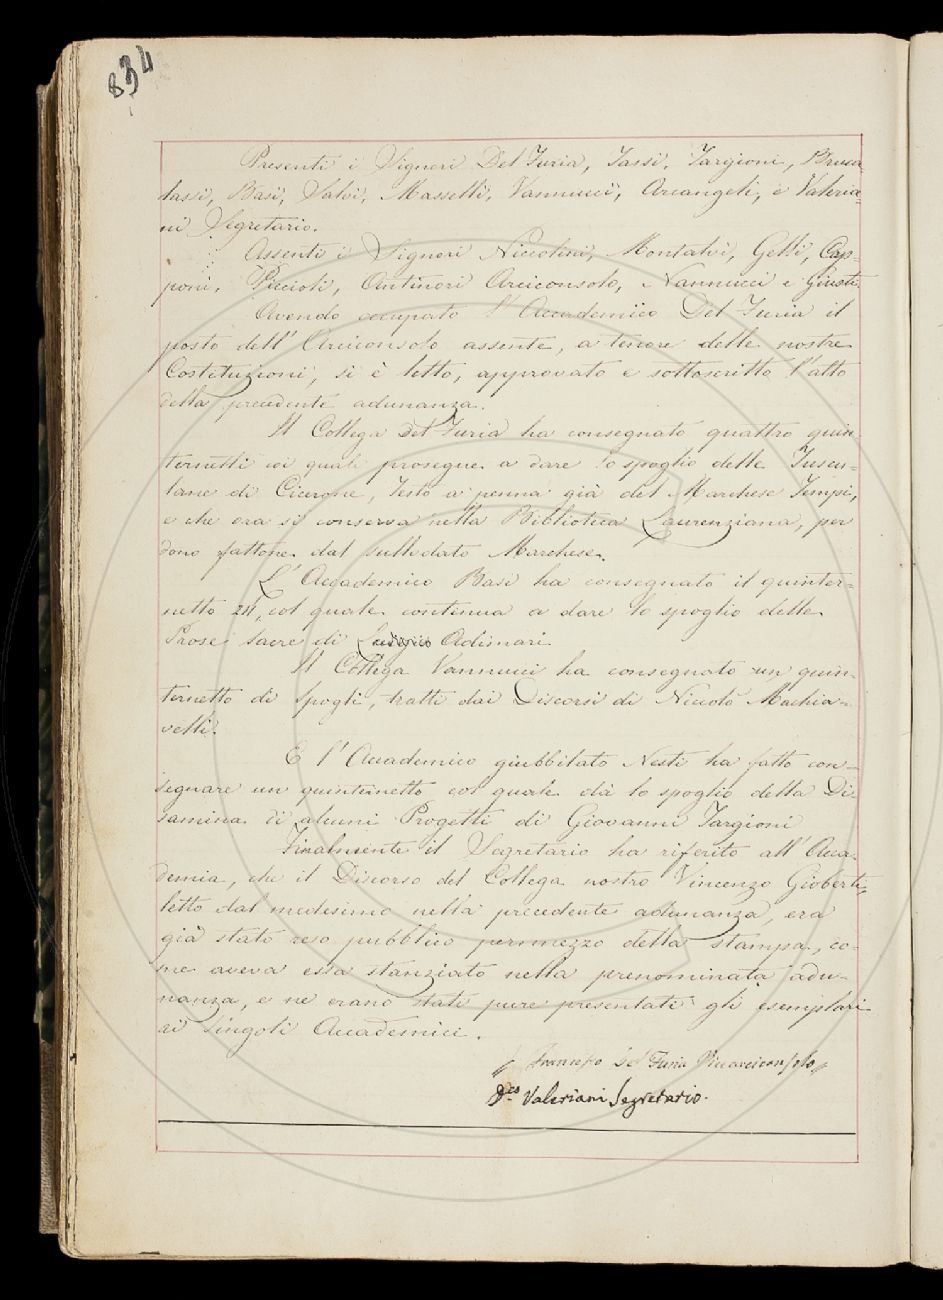 834
Presenti i Signori Del Furia, Tassi, Targioni, Bruca-
lassi, Basi, Salvi, Masselli, Vannucci, Arcangeli, e Valeria-
ni Segretario.
Assenti i Signori Niccolini, Montalvi, Gelli, Cap-
poni, Piccioli, Antinori Arciconsolo, Nannucci e Giusti.
Avendo occupato l'Accademico Del Furia il
posto dell'Arciconsolo assente, a tenore delle nostre
Costituzioni, si è letto, approvato e sottoscritto l'atto
della precedente adunanza.
Il Collega Del Furia ha consegnato quattro quin-
ternetti coi quali prosegue a dare lo spoglio delle Tuscu-
lane di Cicerone, Testo a penna già del Marchese Tempi,
e che ora si conserva nella Biblioteca Laurenziana, per
dono fattone dal sullodato Marchese.
L'Accademico Basi ha consegnato il quinter-
netto 24, col quale continua a dare lo spoglio delle
Prose Sacre di Lodovico Adimari
Il Collega Vannucci ha consegnato un quin-
ternetto di Spogli, tratti dai Discorsi di Niccolò Machia-
velli.
E l'Accademico giubbilato Nesti ha fatto con-
segnare un quinternetto col quale dà lo spoglio della Di-
samina di alcuni Progetti di Giovanni Targioni
Finalmente il Segretario ha riferito all'Acca-
demia, che il Discorso del Collega nostro Vincenzo Gioberti,
letto dal medesimo nella precedente adunanza, era
già stato reso pubblico permezzo della stampa, co-
me aveva essa stanziato nella prenominata adu-
nanza, e ne erano stati pure presentati gli esemplari
ai singoli Accademici.
Francesco Del Furia Vicearciconsolo
Dco Valeriani Segretario.